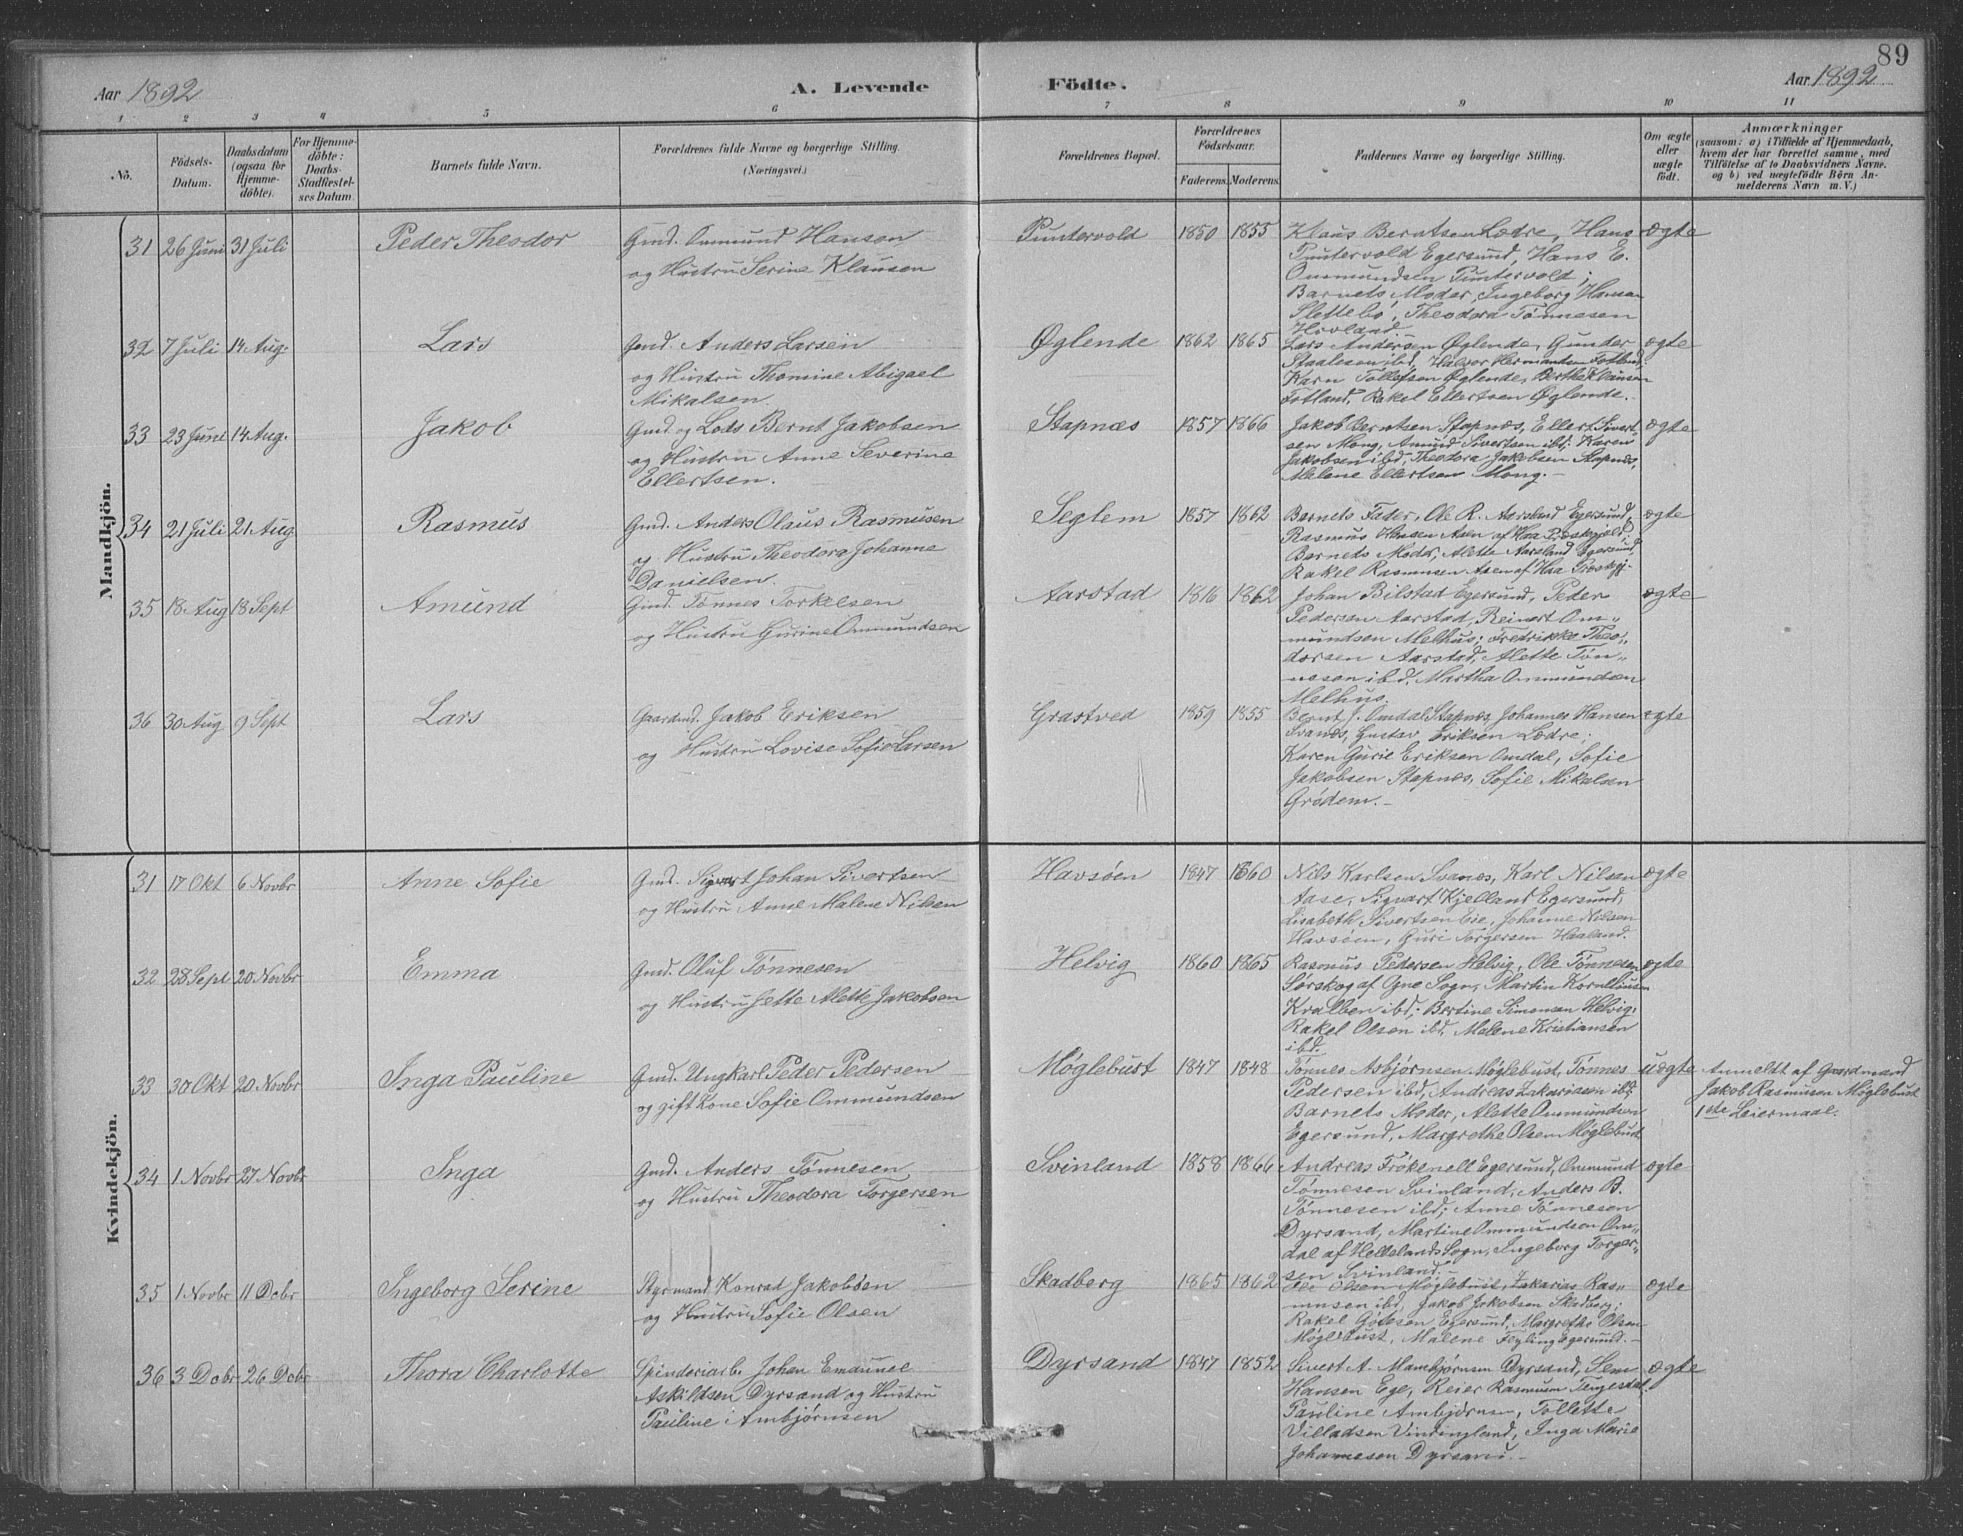 89
Aar 1892
A. Levende
Födte.
Aar 1892
1 2 3 4 5 6 7 8 9 10 11
No.
Födsels-
Datum.
Daabsdatum
(ogsaa för
Hjemme-
döbte).
For Hjemme-
döbte:
Daabs-
Stadfæstel-
ses Datum.
Barnets fulde Navn.
Forældrenes fulde Navne og borgerlige Stilling.
(Næringsvei.)
Forældrenes Bopæl.
Forældrenes
Födselsaar.
Faderens. Moderens.
Faddernes Navne og borgerlige Stilling.
Om ægte
eller
uægte
födt.
Anmærkninger
(saasom: a) i Tilfælde af Hjemmedaab,
hvem der har forrettet samme, med
Tilföielse af to Daabsvidners Navne,
og b) ved uægtefödte Börn An-
melderens Navn m. V.)
Mandkjön.
31 26 Juni 31 Juli Peder Theodor
Gmd. Ommund Hansen
og Hustru Serine Klausen
Puntervold 1850 1855
Klaus Berntsen Lædre, Hans
Puntervold Egersund, Hans E.
Ommundsen Puntervold;
Barnets Moder, Ingeborg Hansen
Slettebö, Theodora Tønnesen
Hovland.
ægte
32 7 Juli 14 Aug. Lars
Gmd. Anders Larsen
og Hustru Thomine Abigael
Mikalsen.
Øglende 1862 1865
Lars Andersen Øglende, Gunder
Staalesen ibd, Halvor Hermansen Fotland;
Karn Tollefsen Øglende, Berthe Klausen
Fotland, Rakel Ellertsen Øglende.
ægte
33 23 Juni 14 Aug. Jakob
Gmd. og Lods Bernt Jakobsen
og Hustru Anne Severine
Ellertsen.
Stapnæs 1857 1866
Jakob Berntsen Stapnæs, Ellert Sivert-
sen Mong, Amund Sivertsen ibd; Karen
Jakobsen ibd, Theodora Jakobsen Stapnæs,
Melene Ellertsen Mong.
ægte
34 21 Juli 21 Aug Rasmus
Gmd. Anders Olaus Rasmusen
og Hustru Theodora Johanne
Danielsen.
Seglem 1857 1862
Barnets Fader, Ole R. Aarsland Egersund,
Rasmus Hansen Aasen af Haa Præstegjeld;
Barnets Moder, Alette Aarsland Egersund,
Rakel Rasmusen Aasen af Haa Præstegj.
ægte
35 18 Aug 18 Sept Amund
Gmd. Tønnes Torkelsen
og Hustru Gurine Ommundsen
Aarstad 1816 1862
Johan Bilstad Egersund, Peder
Pedersen Aarstad, Reinert Om-
mundsen Melhus; Fredrikke Theo-
dorsen Aarstad, Alette Tøn-
nesen ibd. Martha Ommundsen
Melhus.
ægte
36 30 Aug 9 Sept Lars
Gaardmd. Jakob Eriksen
og Hustru Lovise Sofie Larsen
Grastved 1859 1855
Bernt J. Omdal Stapnæs, Johannes Hansen
Svanæs, Gustav Eriksen Lædre;
Karen Gurie Eriksen Omdal, Sofie
Jakobsen Stapnæs, Sofie Mikalsen
Grødem.
ægte
Kvindekjön.
31 17 Okt 6 Novbr Anne Sofie
Gmd. Sigvart Johan Sivertsen
og Hustru Anne Malene Nilsen
Havsøen 1847 1860
Nils Karlsen Svanæs, Karl Nilsen
Aase, Sigvart Kjelland Egersund,
Lisabeth Sivertsen Eie, Johanne Nilsen
Havsøen, Guri Torgersen Haaland.
ægte
32 28 Sept 20 Novbr Emma
Gmd. Oluf Tønnesen
og Hustru Jette Alette Jakobsen
Helvig 1860 1865
Rasmus Pedersen Helvig, Ole Tønnesen
Sørskog af Ogne Sogn, Martin Korneliusen
Kralben ibd; Bertine Simonsen Helvig,
Rakel Olsen ibd, Malene Kristiansen
ibd.
ægte
33 30 Okt 20 Novbr Inga Pauline
Gmd. Ungkarl Peder Pedersen
og gift Kone Sofie Ommundsen
Møglebust 1847 1848
Tønnes Asbjørnsen Møglebust, Tønnes
Pedersen ibd, Andreas Zakariasen ibd;
Barnets Moder, Alette Ommundsen
Egersund, Margrethe Olsen Møglebust
uægte
Anmeldt af Gaardmand
Jakob Rasmusen Møglebust
1ste Leiermaal.
34 1 Novbr 27 Novbr Inga
Gmd. Anders Tønnesen
og Hustru Theodora Torgersen
Svinland 1858 1866
Andreas Frökenell Egersund, Ommund
Tønnesen Svinland, Anders B.
Tønnesen ibd; Anne Tønnesen
Dyrsand, Martine Ommundsen Om-
dal af Hellelands Sogn, Ingeborg Torger-
sen Svinland.
ægte
35 1 Novbr 11 Debr Ingeborg Serine
Styrmand Konrad Jakobsen
og Hustru Sofie Olsen
Skadberg 1865 1862
Ole Olsen Møglebust, Zakarias Ras-
musen ibd, Jakob Jakobsen Skadberg;
Rakel Gotesen Egersund, Margrethe Olsen
Møglebust, Malene Feyling Egersund.
ægte
36 3 Debr 26 Debr Thora Charlotte
Spinderiarb. Johan Emanuel
Askildsen Dyrsand og Hustru
Pauline Ambjørnsen
Dyrsand 1847 1852
Sivert A. Mambjørnsen Dyrsand, Sem
Hansen Ege, Reier Rasmusen Tengesdal,
Pauline Ambjørnsen, Tollette
Villadsen Vindingland, Inga Marie
Johannesen Dyrsand.
ægte